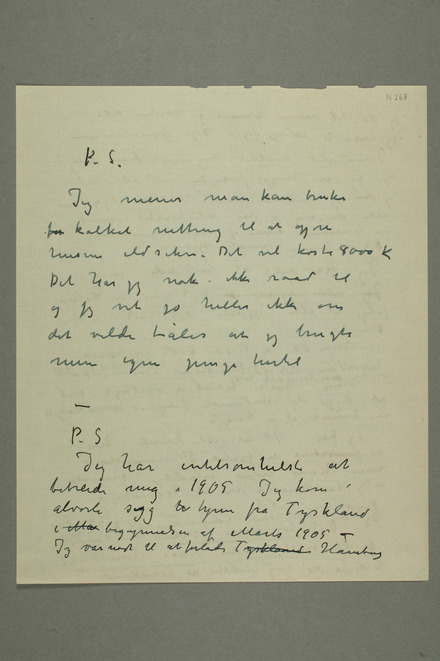 N 269
P. S.
Jeg mener man kan bruke
kalket netting til at gjøre
husene ildsikre. Det vil koste 8000 K
Det har jeg nok ikke raad til
og jeg vet jo heller ikke om
det vilde taales at jeg brugte
mine egne penge hertil
—
P. S
Jeg har at
mig i 1905 Jeg kom i
alvorlig syg hjem fra Tyskland
i begyndelsen af Marts 1905 —
Jeg var nødt til at forlade Tyskland Hamburg